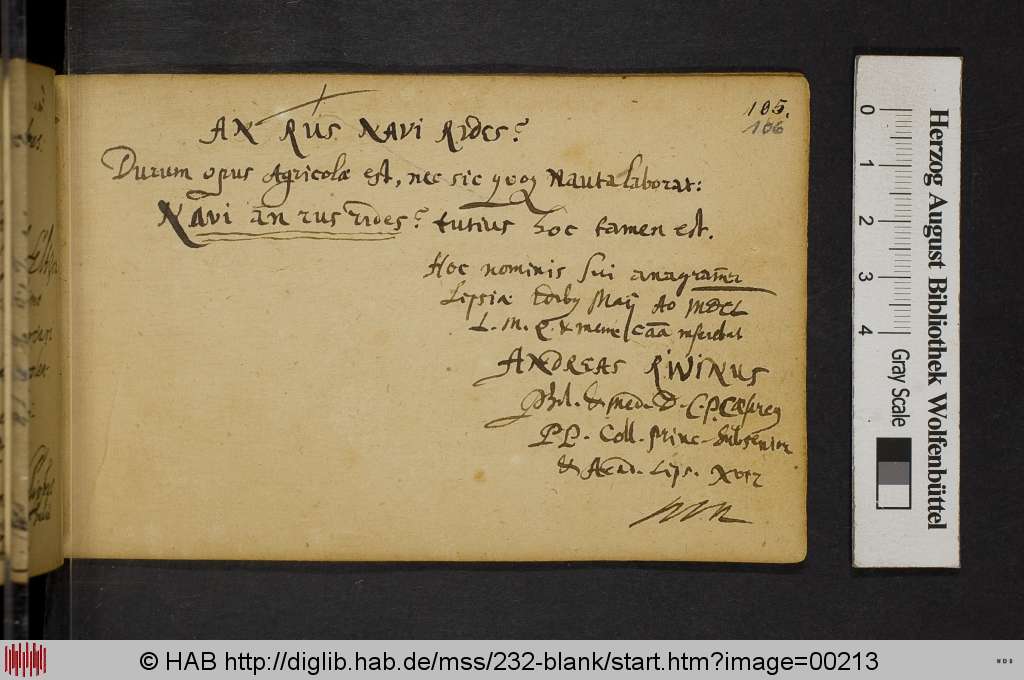 105.
106
AN RUS NAVI RIDES?
Durum opus Agricolæ est, nec sic quoq Nauta laborat:
NAVi an rus rides? tutius hoc tamen est.
Hoc nominis sui anagram̄
Lipsiæ Maij Ao MDCL
L. M. Q. & meme inserebat
ANDREAS RIVINUS
Phil. & Med. D. C. P. Cæsareq
P.P. Coll. princ. Subsenior
& Acad. Lips. Xvir
Herzog August Bibliothek Wolfenbüttel
0 1 2 3 4
Gray Scale
© HAB http://diglib.hab.de/mss/232-blank/start.htm?image=00213